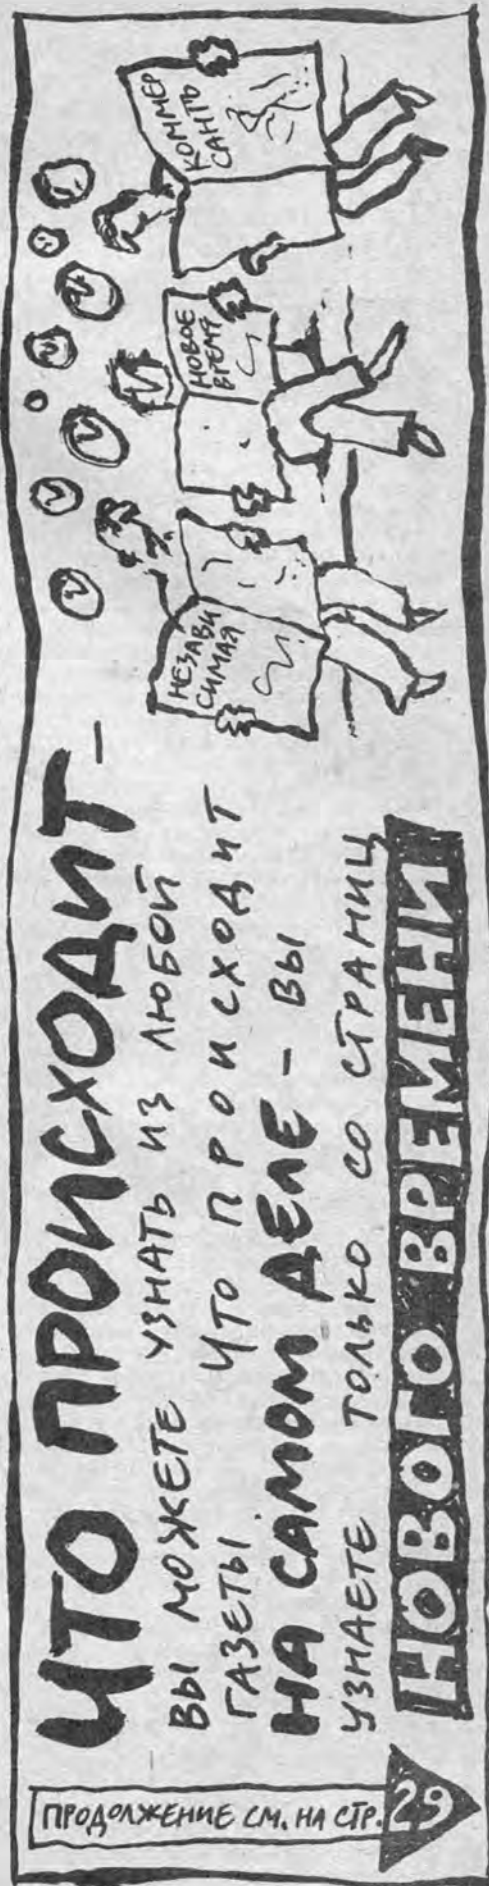 ЧТО ПРОИСХОДИТ –
ВЫ МОЖЕТЕ УЗНАТЬ ИЗ ЛЮБОЙ
ГАЗЕТЫ. ЧТО ПРОИСХОДИТ
НА САМОМ ДЕЛЕ – ВЫ
УЗНАЕТЕ ТОЛЬКО СО СТРАНИЦ
НОВОГО ВРЕМЕНИ
НЕЗАВИ
СИМАЯ
НОВОЕ
ВРЕМЯ
КОММЕР
САНТЪ
ПРОДОЛЖЕНИЕ СМ. НА СТР. 29